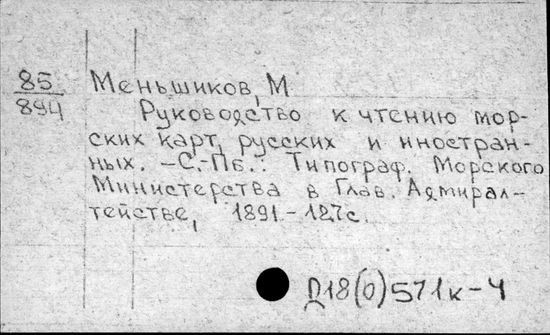 85
894
Меньшиков, М
Руководство к чтению мор-
ских карт, русских и иностран-
ных. -С.-Пб.: Типограф. Морского
Министерства в Глав. Адмирал-
тействе, 1891.- 127с.
Д18(0)571к-4